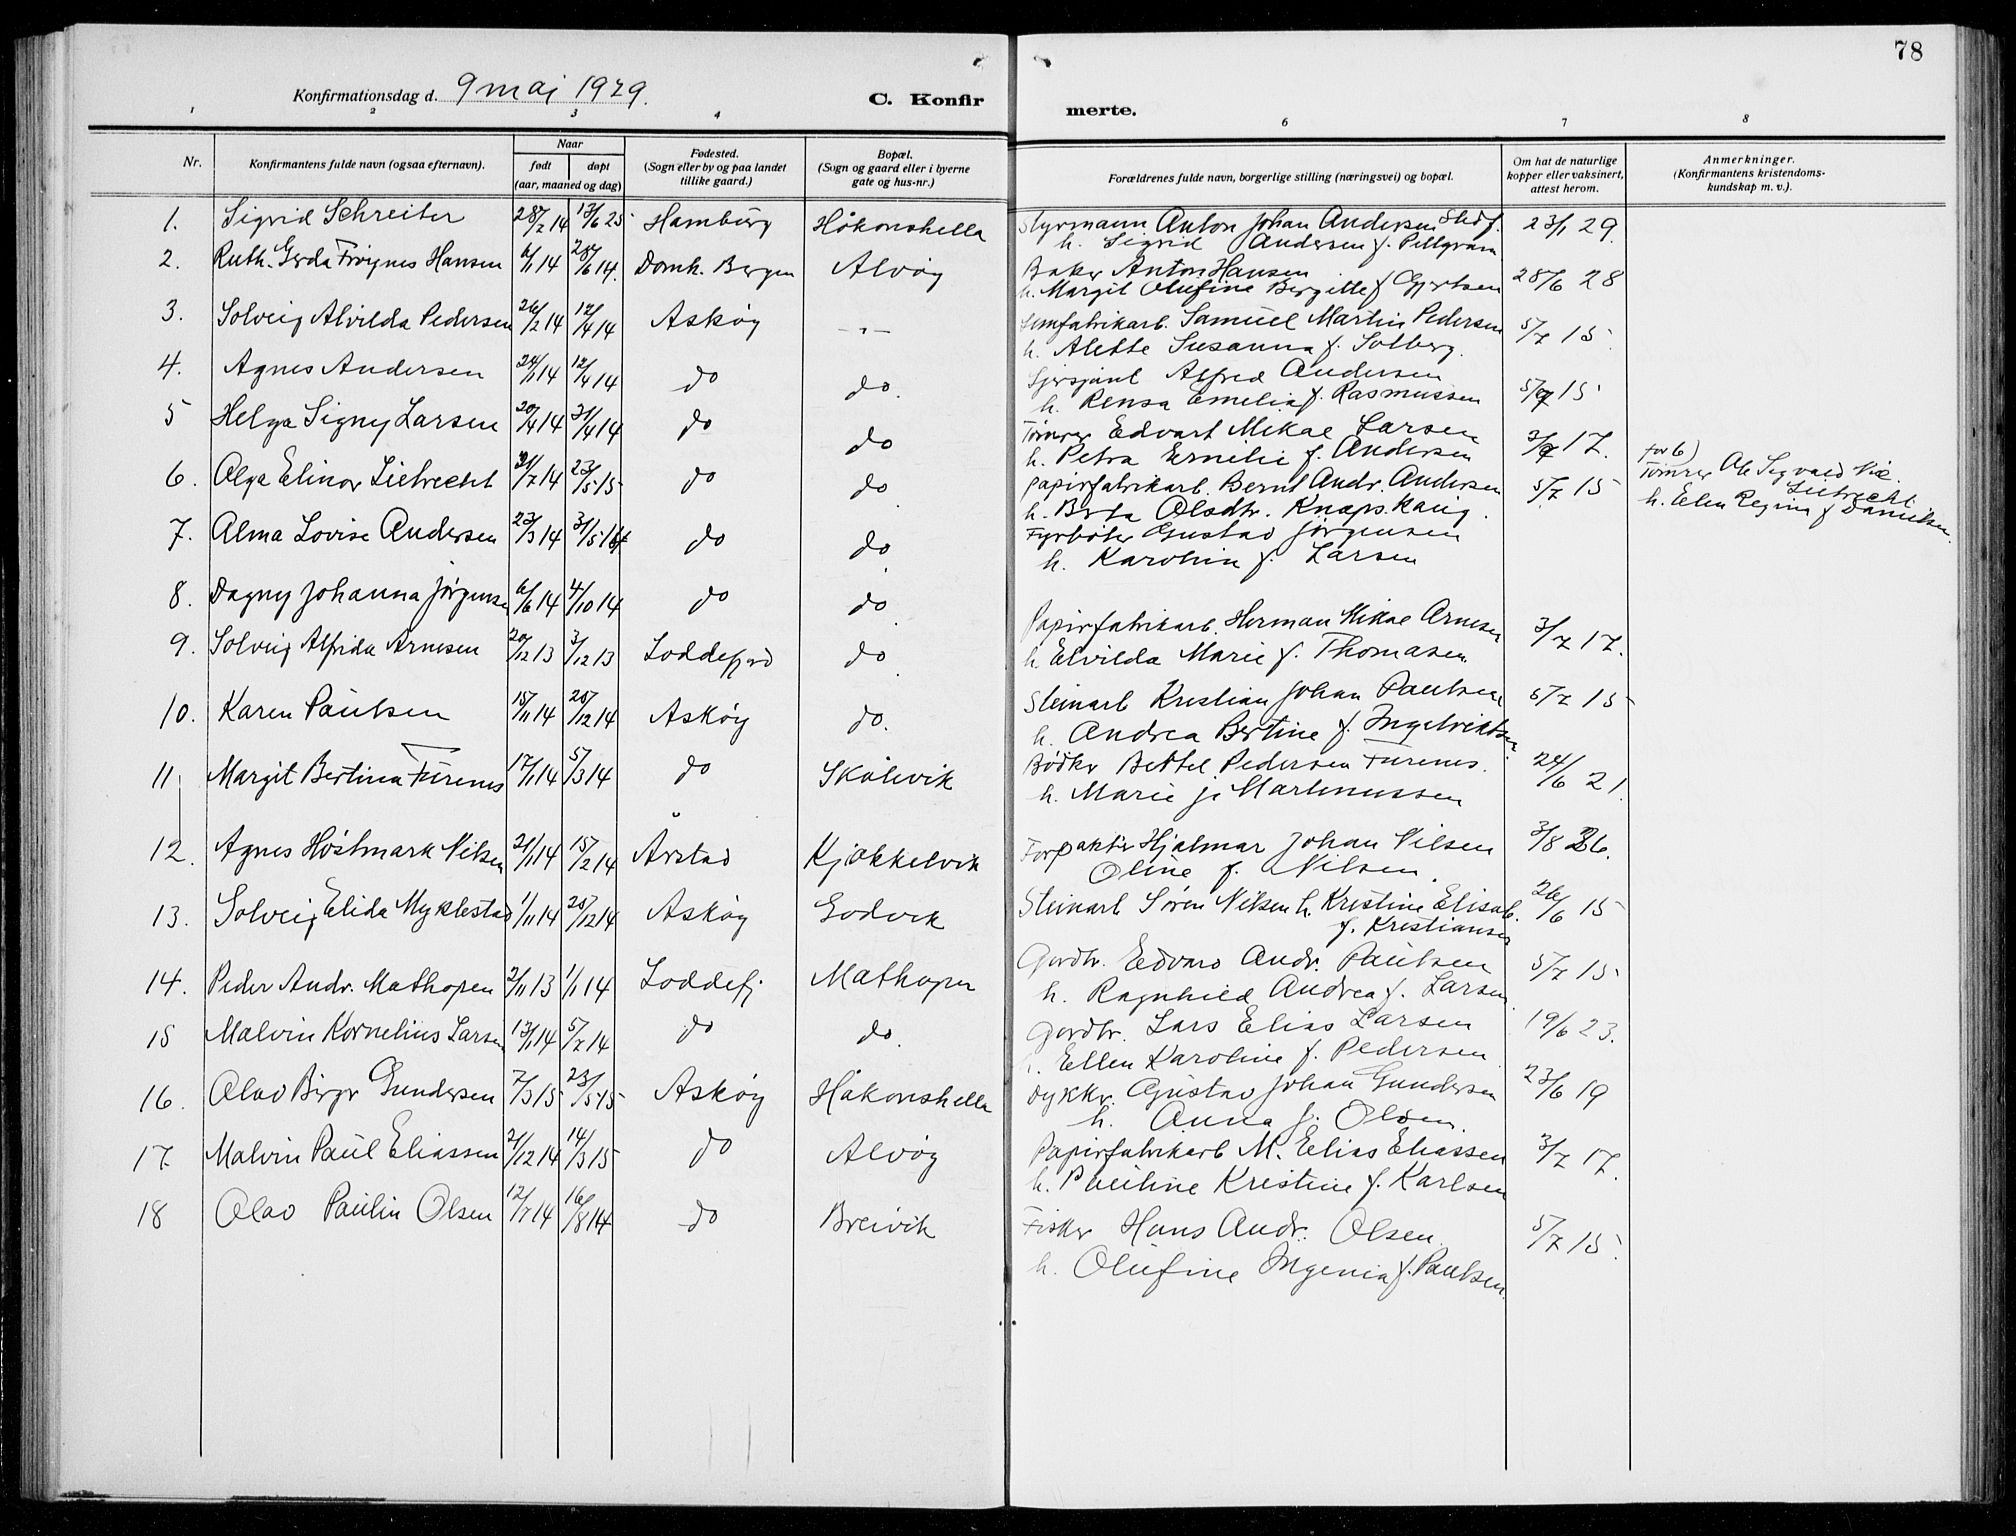 78
Konfirmationsdag d. 9 mai 1929.
C. Konfirmerte.
1 2 3 4 6 7 8
Nr. Konfirmantens fulde navn (ogsaa efternavn). Naar født døpt (aar, maaned og dag) Fødested. (Sogn eller by og paa landet tillike gaard.) Bopæl. (Sogn og gaard eller i byerne gate og hus-nr.) Forældrenes fulde navn, borgerlige stilling (næringsvei) og bopæl. Om hat de naturlige kopper eller vaksinert, attest herom. Anmerkninger. (Konfirmantens kristendomskundskap m. v.).
1. Sigrid Schreiter 28/2 14 13/6 25 Hamburg Håkonshella Styrmann Anton Johan Andersen Stedf. 23/1 29.
h. Sigrid Andersen f. Pellgram
2. Ruth. Gerda Frøignes Hansen 6/1 14 28/6 14. Domk. Bergen Alvøy Baker Anton Hansen 28/6 28
h. Margit Olufine Bergitte f Gjertsen
3. Solveig Alvilda Pedersen 26/2 14 12/4 14 Askøy -"- Samuel Martin Pedersen 5/7 15
h. Alette Susanna f. Solberg.
4. Agnes Andersen 24/1 14 12/4 14 do do. Alfred Andersen 5/7 15
h. Rensa Emelia f. Rasmussen
5 Helga Signy Larsen 20/4 14 31/4 14 do do Tømrer Edvart Mikal Larsen 3/7 17.
h. Petra Emelie f. Andersen
6. Olga Elinor Liebrecht 31/7 14 23/5 15 do do. papirfabrikarb. Bernt Andr. Andersen 5/7 15 for 6) Tømrer Ole Sigvald Nic. Liebrecht
h. Berta Olsdtr. Knapskaug. h. Elen Regine f Danielsen.
7. Alma Lovise Andersen 23/3 14 31/5 14 do do. Fyrbøter Gustav Jørgensen
h. Karolin f. Larsen
8. Dagny Johanna Jørgensen 6/6 14 4/10 14 do do.
9. Solveig Alfrida Arnesen 20/12 13 3/12 13 Loddefjord do. Papirfabrikarb. Herman Mikal Arnesen 3/7 17.
h Elvilda Marie f. Thomasen
10. Karen Paulsen 15/11 14 25/12 14 Askøy do. Steinarb Kristian Johan Paulsen 5/7 15
h. Andrea Bertine f. Ingebriktsen
11 Margit Bertina Furenes 17/1 14 5/3 14 do Skålvik Bødker Bertel Pedersen Furenes. 24/6 21.
h. Marie f. Martinussen
12. Agnes Høstmark Nilsen 21/1 14 15/2 14 Årstad Kjøkkelvik Forpakter Hjalmar Johan Nilsen 3/8 26.
Oline f. Nilsen.
13. Solveig Elida Myklestad 1/11 14 25/12 14 Askøy Godvik Steinarb Søren Nilsen h. Kristine Elisab. 26/6 15
f. Kristiansen
14. Peder Andr. Mathopen 2/11 13 1/1 14 Loddefj Mathopen Gardbr. Edvard Andr. Paulsen 5/7 15
h. Ragnhild Andrea f. Larsen
15 Malvin Kornelius Larsen 13/1 14 5/7 14 do do. Gardbr. Lars Elias Larsen 19/6 23.
h. Ellen Karoline f. Pedersen
16. Olav Birger Gundersen 7/3 15 23/5 15 Askøy Håkonshella Dykker. Gustav Johan Gundersen 23/6 19
h. Anna f. Olsen.
17. Malvin Paul Eliassen 21/12 14 14/3 15 do Alvøy Papirfabrikarb M. Elias Eliassen 3/7 17.
h. Pauline Kristine f. Karlsen
18 Olav Paulin Olsen 12/7 14 16/8 14 do Breivik Fisker Hans Andr. Olsen. 5/7 15.
h. Olufine Ingenia f. Paulsen.